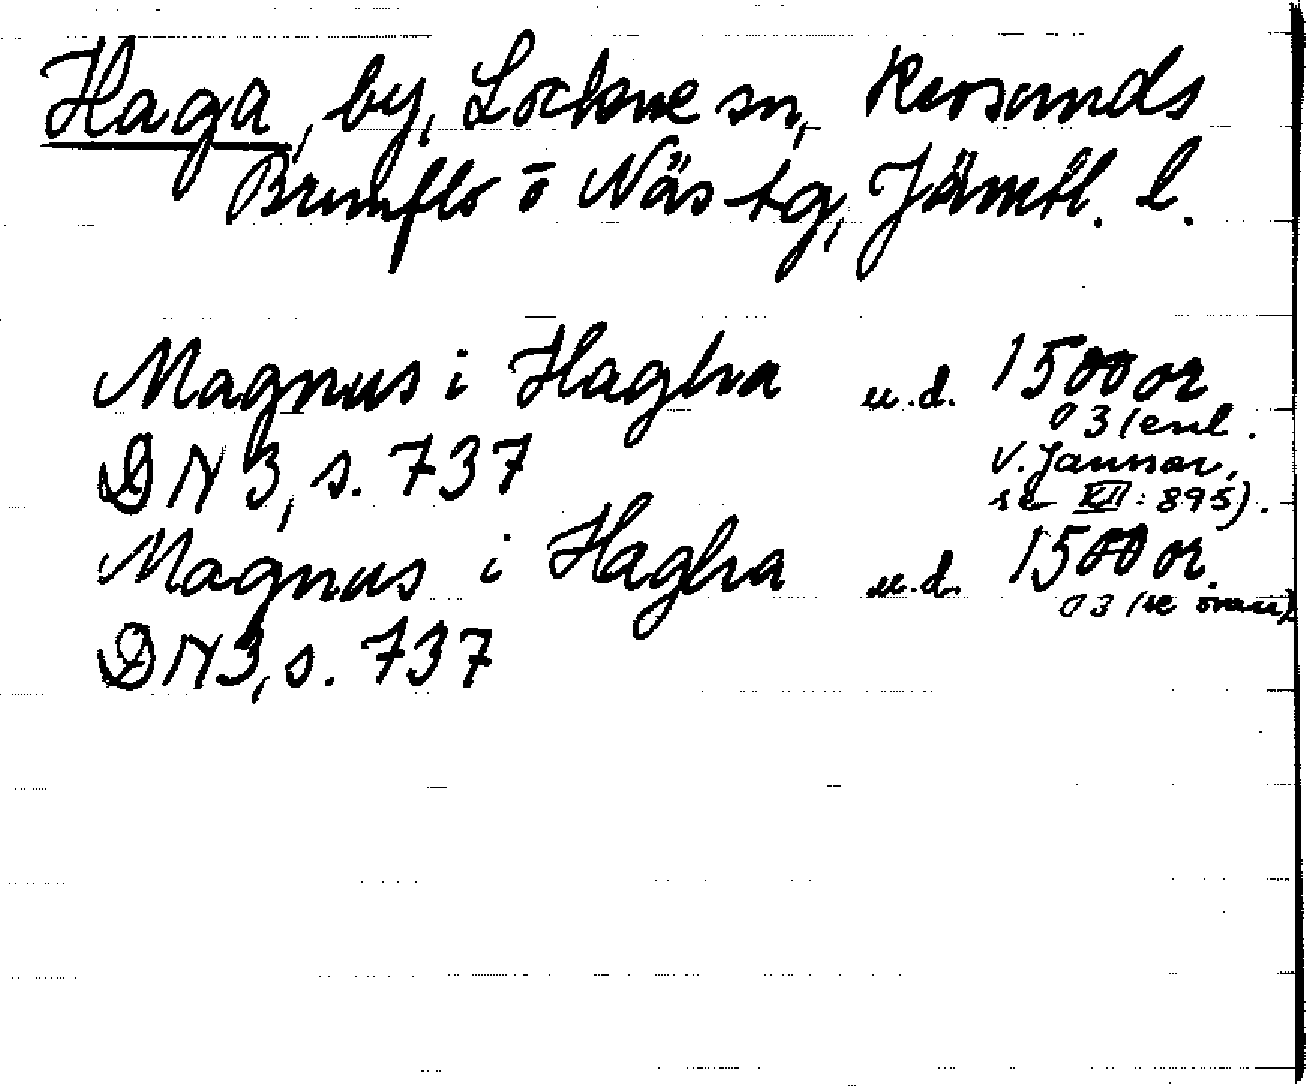 Haga, by, Lockne sn, Revsunds
Brunflo o Näs tg, Jämtl. l.
Magnus i Hagha u.d. 1500 or
03 (enl.
DN 3, s. 737 V. Jansson,
se XII: 895).
Magnus i Hagha u.d. 1500 or.
03 (se ovan)
DN3, s. 737